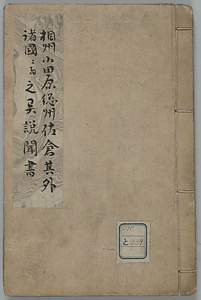 相州小田原総州佐倉其外
諸國ニ而之異説聞書